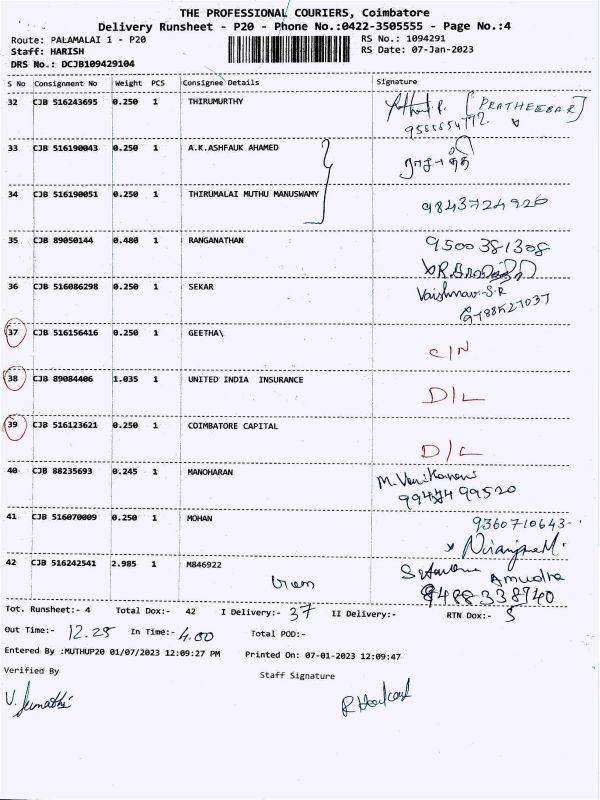 THE PROFESSIONAL COURIERS, Coimbatore
Delivery Runsheet - P20 - Phone No.:0422-3505555 - Page No.:4
Route: PALAMALAI 1 - P20 RS No.: 1094291
Staff: HARISH RS Date: 07-Jan-2023
DRS No.: DCJB109429104
S No Consignment No Weight PCS Consignee Details Signature
32 CJB 516243695 0.250 1 THIRUMURTHY [PRATHEEBAR]
33 CJB 516190043 0.250 1 A.K.ASHFAUK AHAMED
34 CJB 516190051 0.250 1 THIRUMALAI MUTHU MANUSWAMY 9843724920
35 CJB 89050144 0.480 1 RANGANATHAN 9500381308
36 CJB 516086298 0.250 1 SEKAR Vaishnav.S.R
9788527037
37 CJB 516156416 0.250 1 GEETHA\ C/N
38 CJB 89084406 1.035 1 UNITED INDIA INSURANCE D/L
39 CJB 516123621 0.250 1 COIMBATORE CAPITAL D/L
40 CJB 88235693 0.245 1 MANOHARAN
41 CJB 516070009 0.250 1 MOHAN 9360710643-
Niranjna M.
42 CJB 516242541 2.985 1 M846922 Amudha
9488338740
Tot. Runsheet:- 4 Total Dox:- 42 I Delivery:- 37 II Delivery:- RTN Dox:- 5
Out Time:- 12.25 In Time:- 4.00 Total POD:-
Entered By :MUTHUP20 01/07/2023 12:09:27 PM Printed On: 07-01-2023 12:09:47
Verified By Staff Signature
V. Sumathi